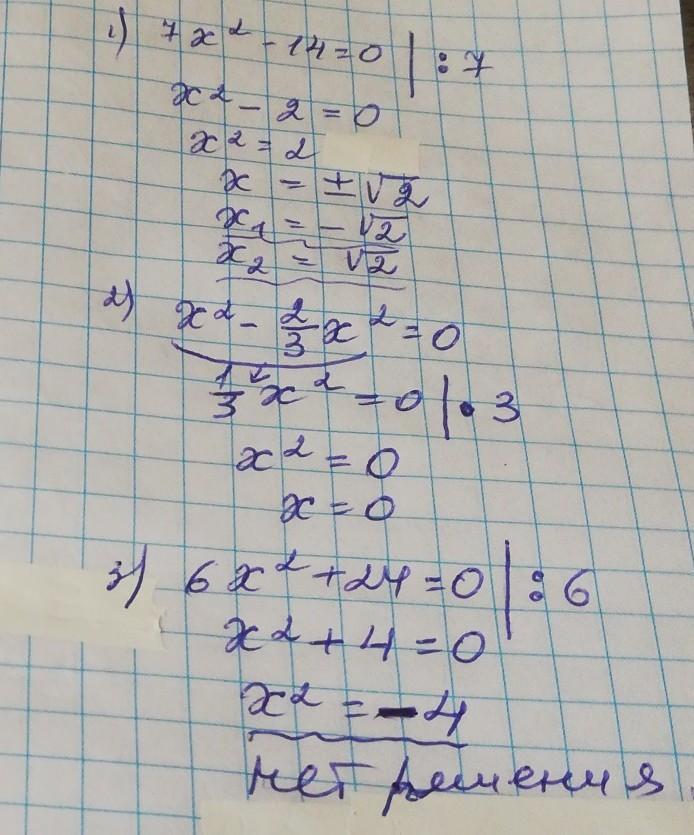 1) 7x² - 14 = 0 | : 7
x² - 2 = 0
x² = 2
x = ± √2
x₁ = - √2
x₂ = √2
2) x² - 2/3 x² = 0
1/3 x² = 0 | • 3
x² = 0
x = 0
3) 6x² + 24 = 0 | : 6
x² + 4 = 0
x² = - 4
нет решения